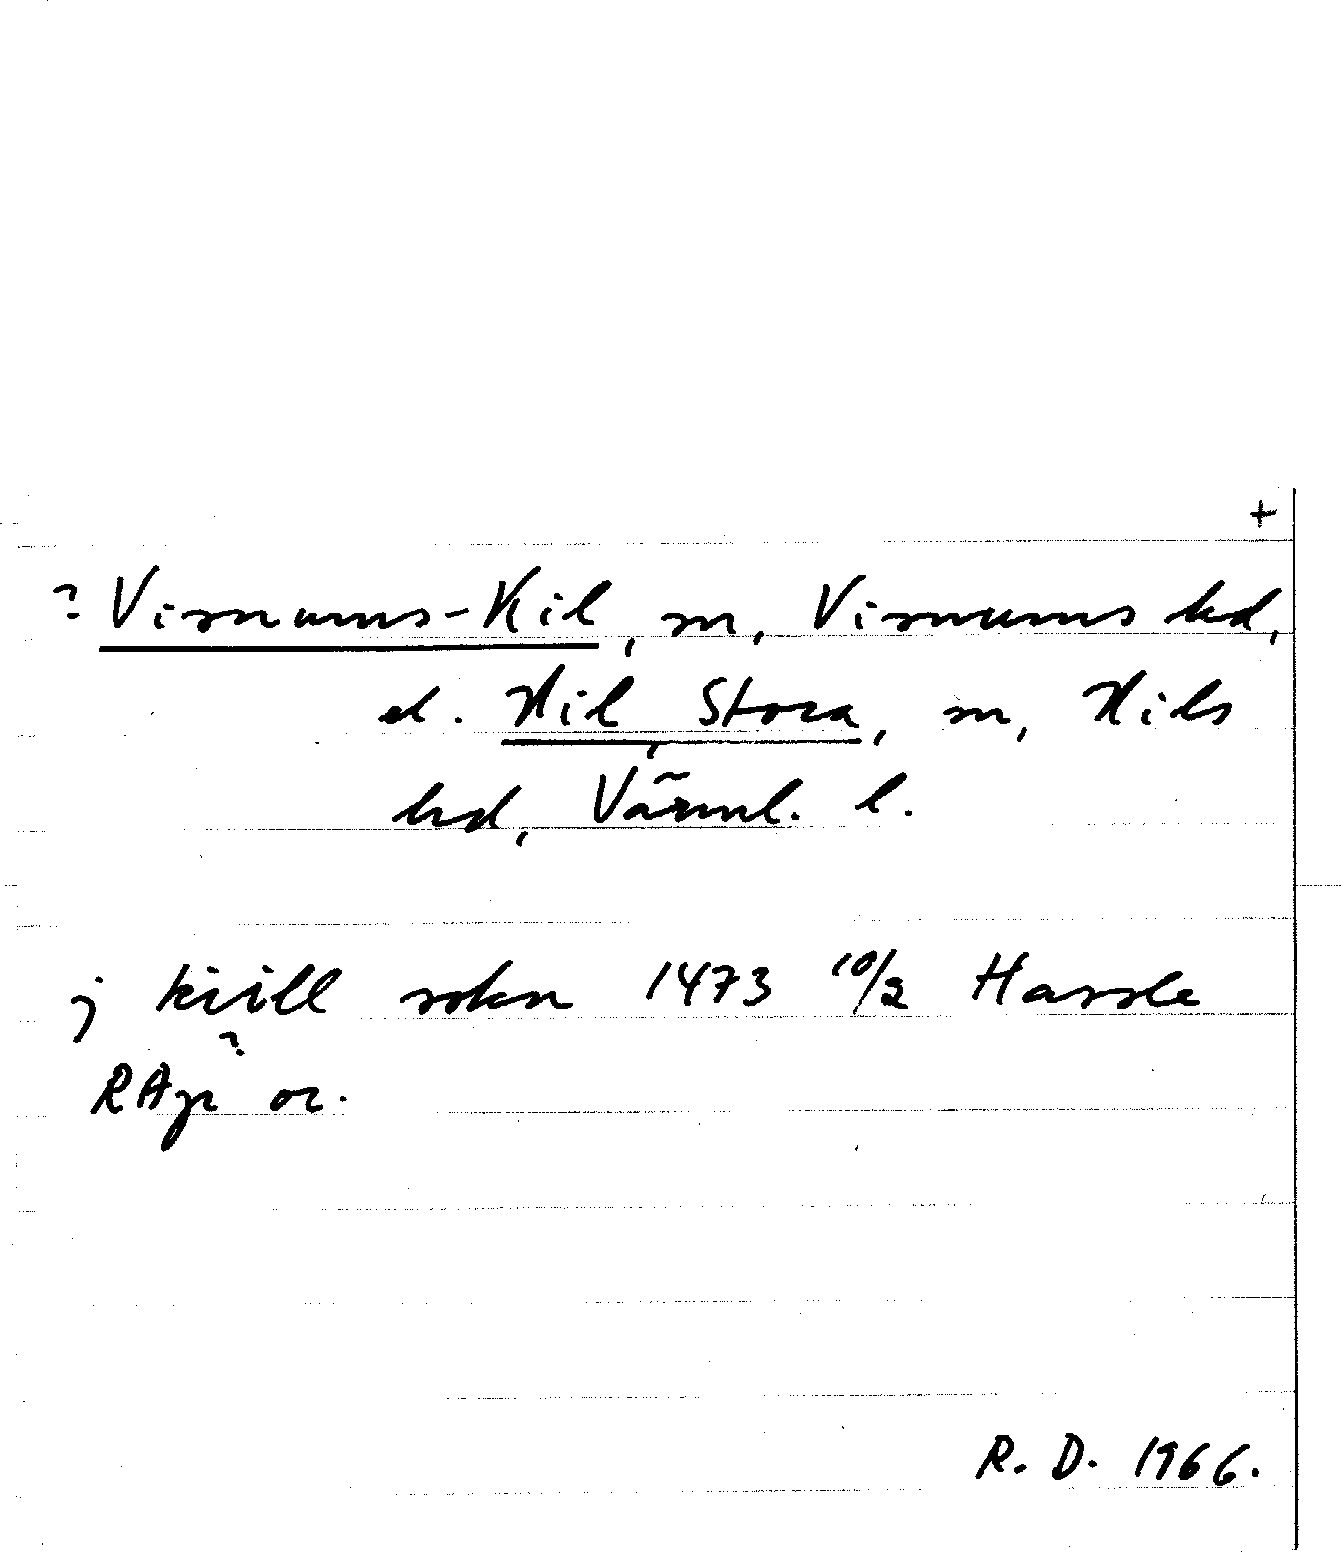 +
? Visnums-Kil, sn, Visnums hd,
el. Kil, Stora, sn, Kils
hd, Värml. l.
j kiill sokn 1473 10/2 Hassle
?
RAp or.
R. D. 1966.